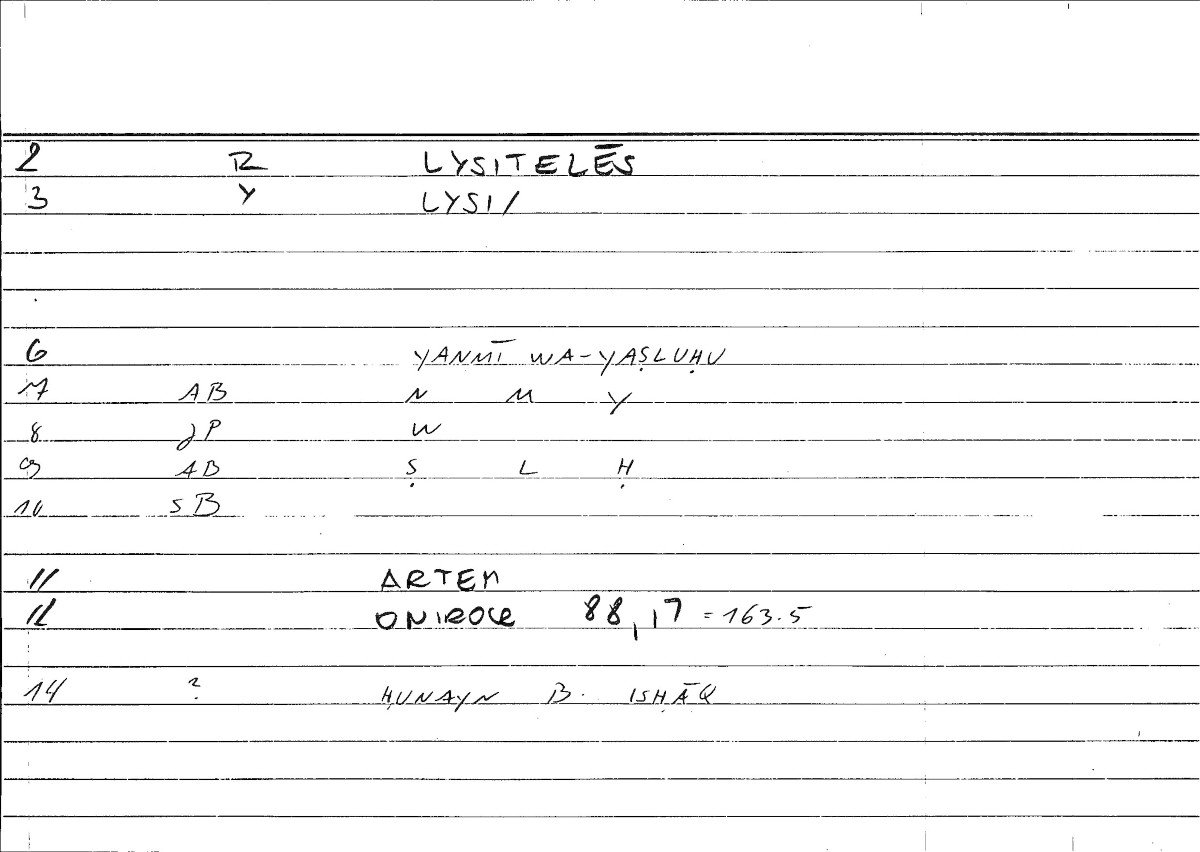 2 R LYSITELĒS
3 Y LYSI/
6 YANMĪ WA-YAṢLUḤU
7 AB N M Y
8 JP W
9 AB Ṣ L Ḥ
10 SB
11 ARTEM
12 ONIROCR 88,17 = 163.5
14 ? ḤUNAYN B. ISḤĀQ